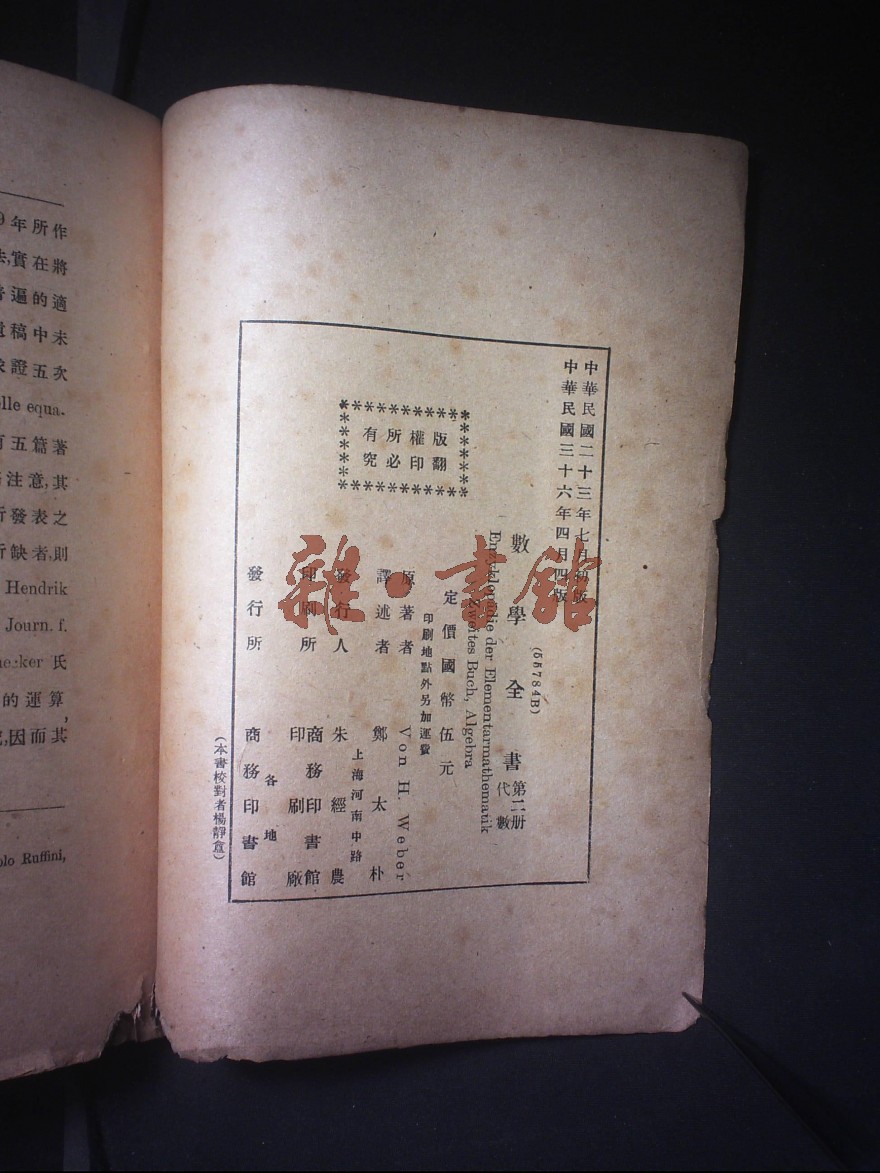 中華民國二十三年七月初版
中華民國三十六年四月四版
(55784B)
數學全書 第二册 代數
Encyklopädie der Elementarmathematik
Zweites Buch, Algebra
定價國幣伍元
印刷地點外另加運費
版權所有
翻印必究
原著者 Von H. Weber
譯述者 鄭太朴
上海河南中路
發行人 朱經農
印刷所 商務印書館
印刷廠
各地
發行所 商務印書館
(本書校對者楊靜盦)
雜·書館
9年所作
法,實在將
普遍的適
遺稿中未
求證五次
elle equa-
有五篇著
注意,其
所發表之
所缺者,則
Hendrik
Journ. f.
氏
的運算
,因而其
olo Ruffini,